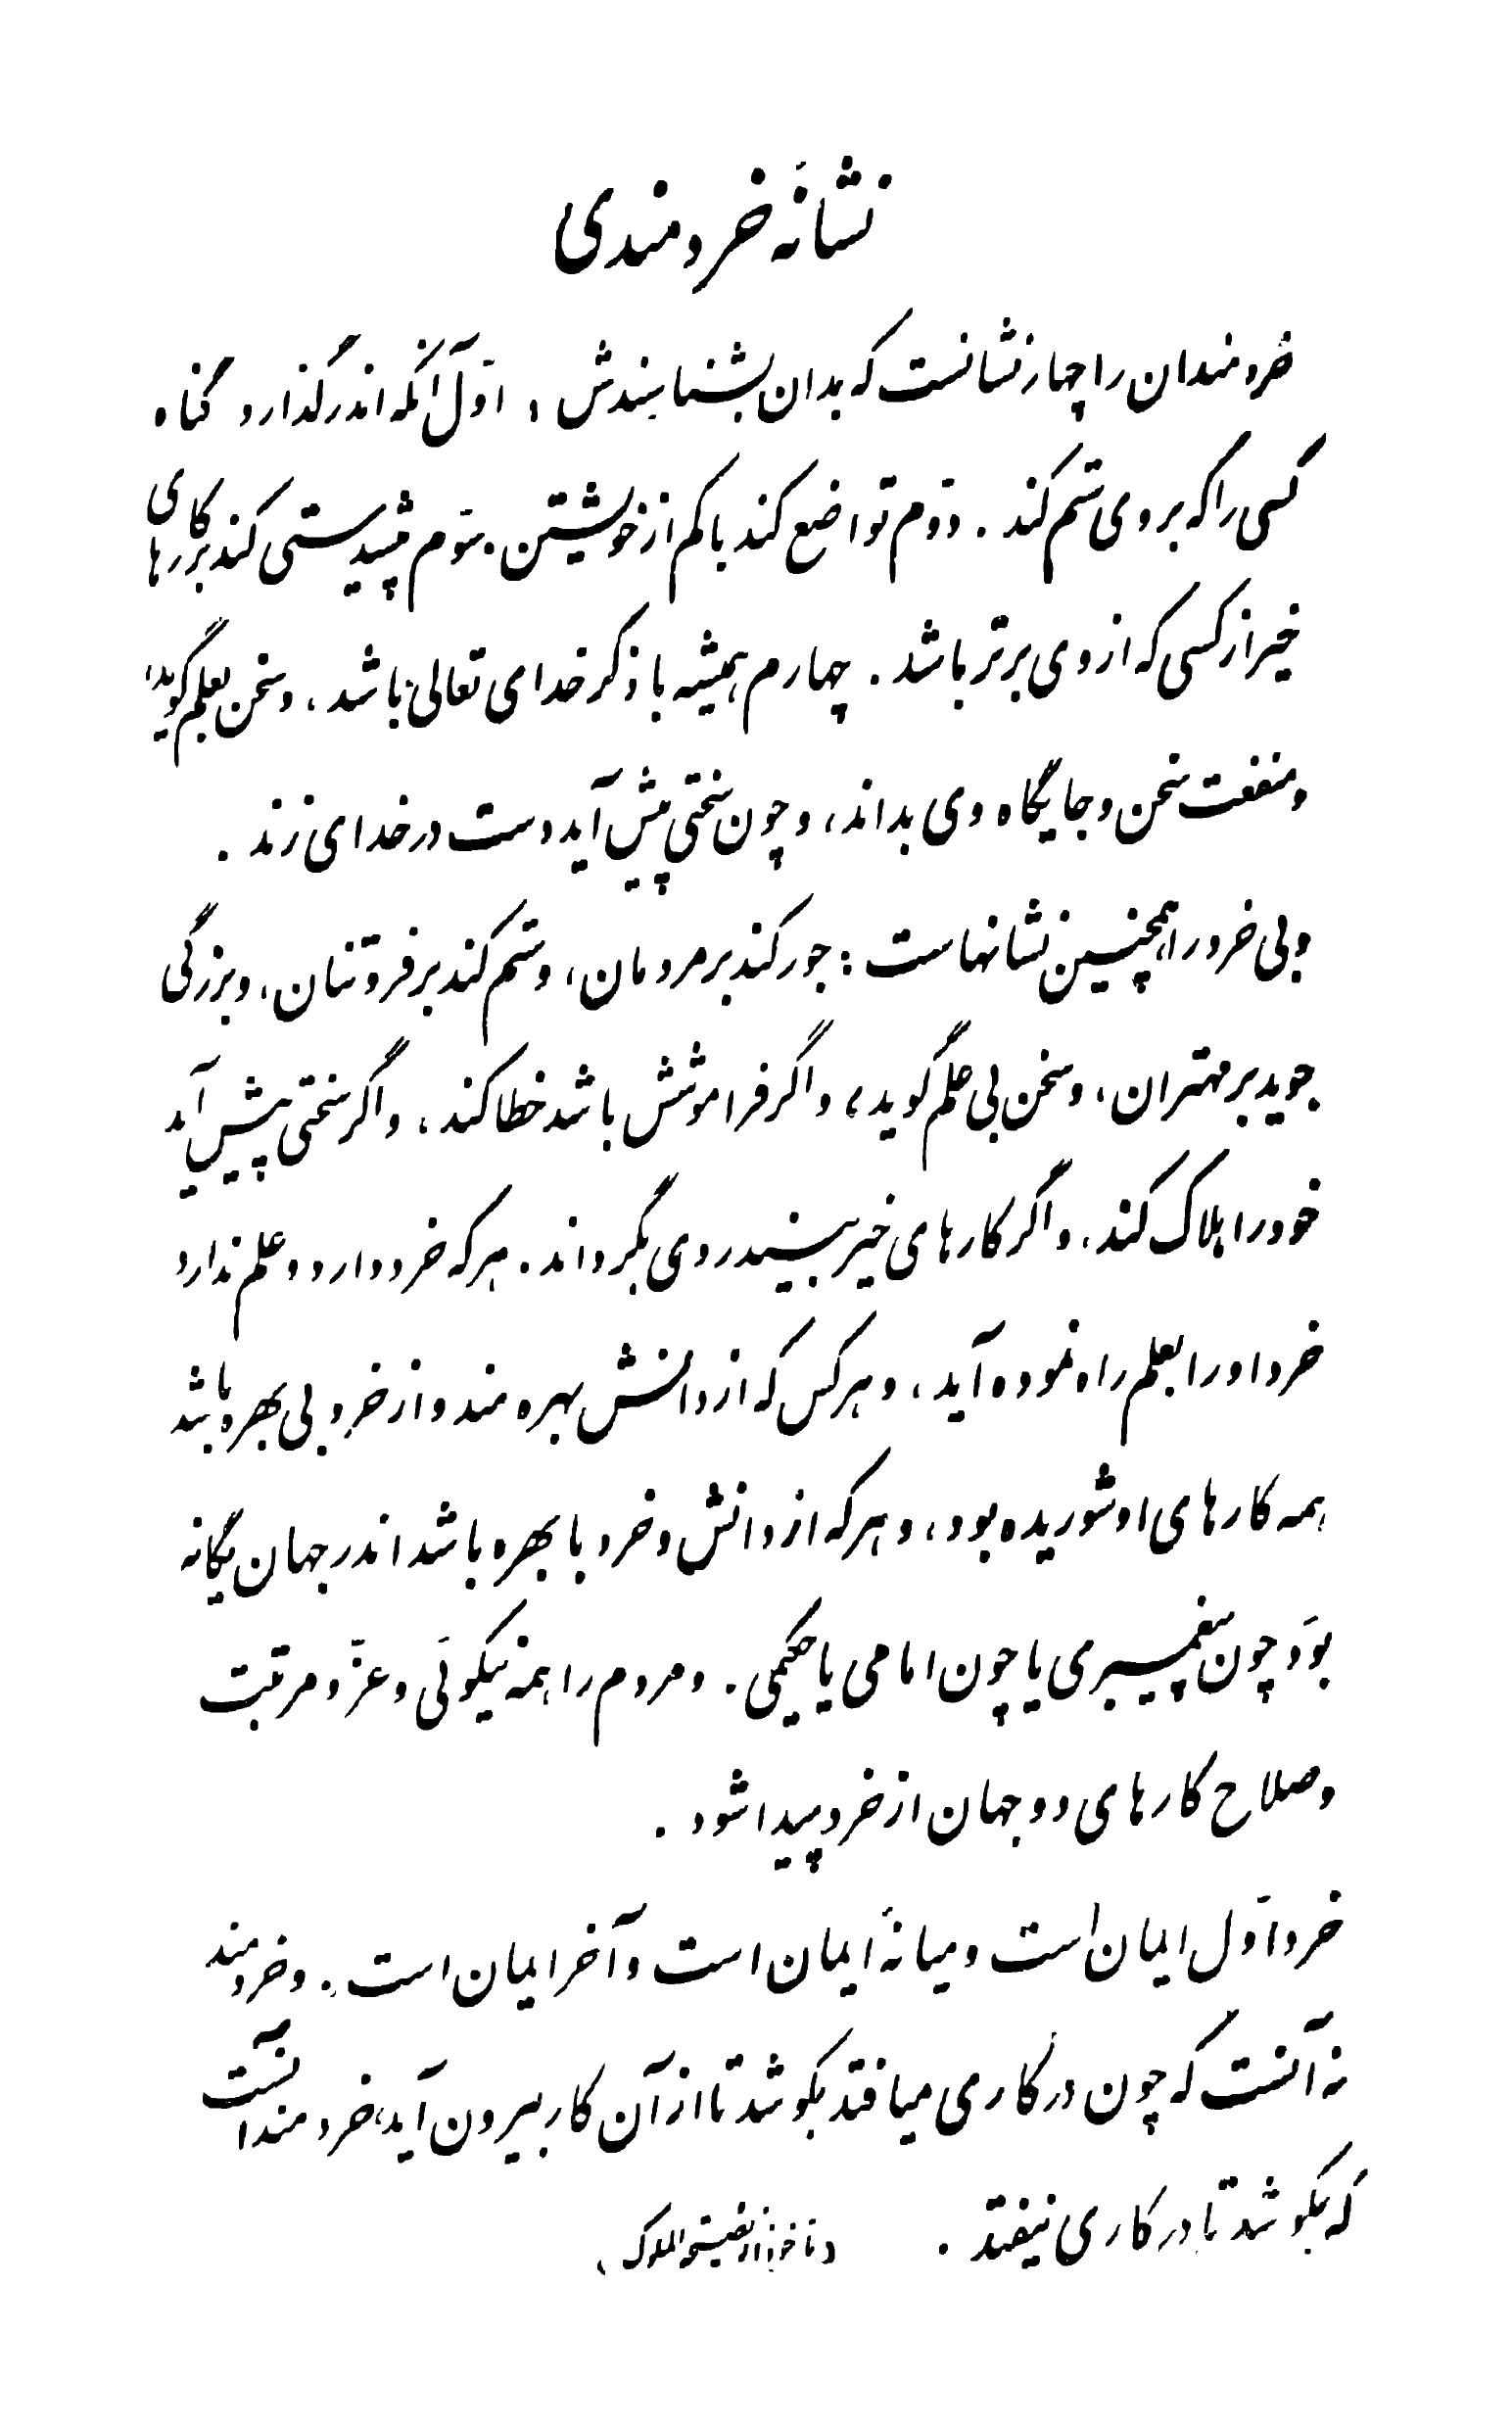 نشانهٔ خردمندی
خردمندان را چهار نشانست که بدان بشناسندش، اوّل آنکه اندر گذارد گناه
کسی را که بر وی ستم کند. دوّم تواضع کند با کم از خویشتن. سوّم پیشدستی کند بر کارهای
خیر از کسی که از وی برتر باشد. چهارم همیشه با ذکر خدای تعالی باشد، و سخن بعلم گوید،
و منفعت سخن و جایگاه وی بداند، و چون سختی پیش آید دست در خدای زند.
و بی خرد را همچنین نشانهاست: جور کند بر مردمان، و ستم کند بر فروتنان، و بزرگی
جوید بر مهتران، و سخن بی علم گوید، و اگر فراموشش باشد خطا کند، و اگر سختی پیش آید
خود را هلاک کند، و اگر کارهای خیر بیند روی بگرداند. هر که خرد دارد و علم ندارد
خرد او را بعلم راه نموده آید، و هر کس که از دانش بهره مند و از خرد بی بهره باشد
همه کارهای او شوریده بود، و هر که از دانش و خرد با بهره باشد اندر جهان یگانه
بوَد چون پیغمبری یا چون امامی یا حکیمی. و مردم را همه نیکوئی و عزّ و مرتبت
و صلاح کارهای دو جهان از خرد پیدا شود.
خرد اوّل ایمان است و میانهٔ ایمان است و آخر ایمان است. و خردمند
نه آنست که چون در کاری میافتد بکوشد تا از آن کار بیرون آید، خردمند آنست
که بکوشد تا در کاری نیفتد. (مأخوذ از نصیحةالملوک)